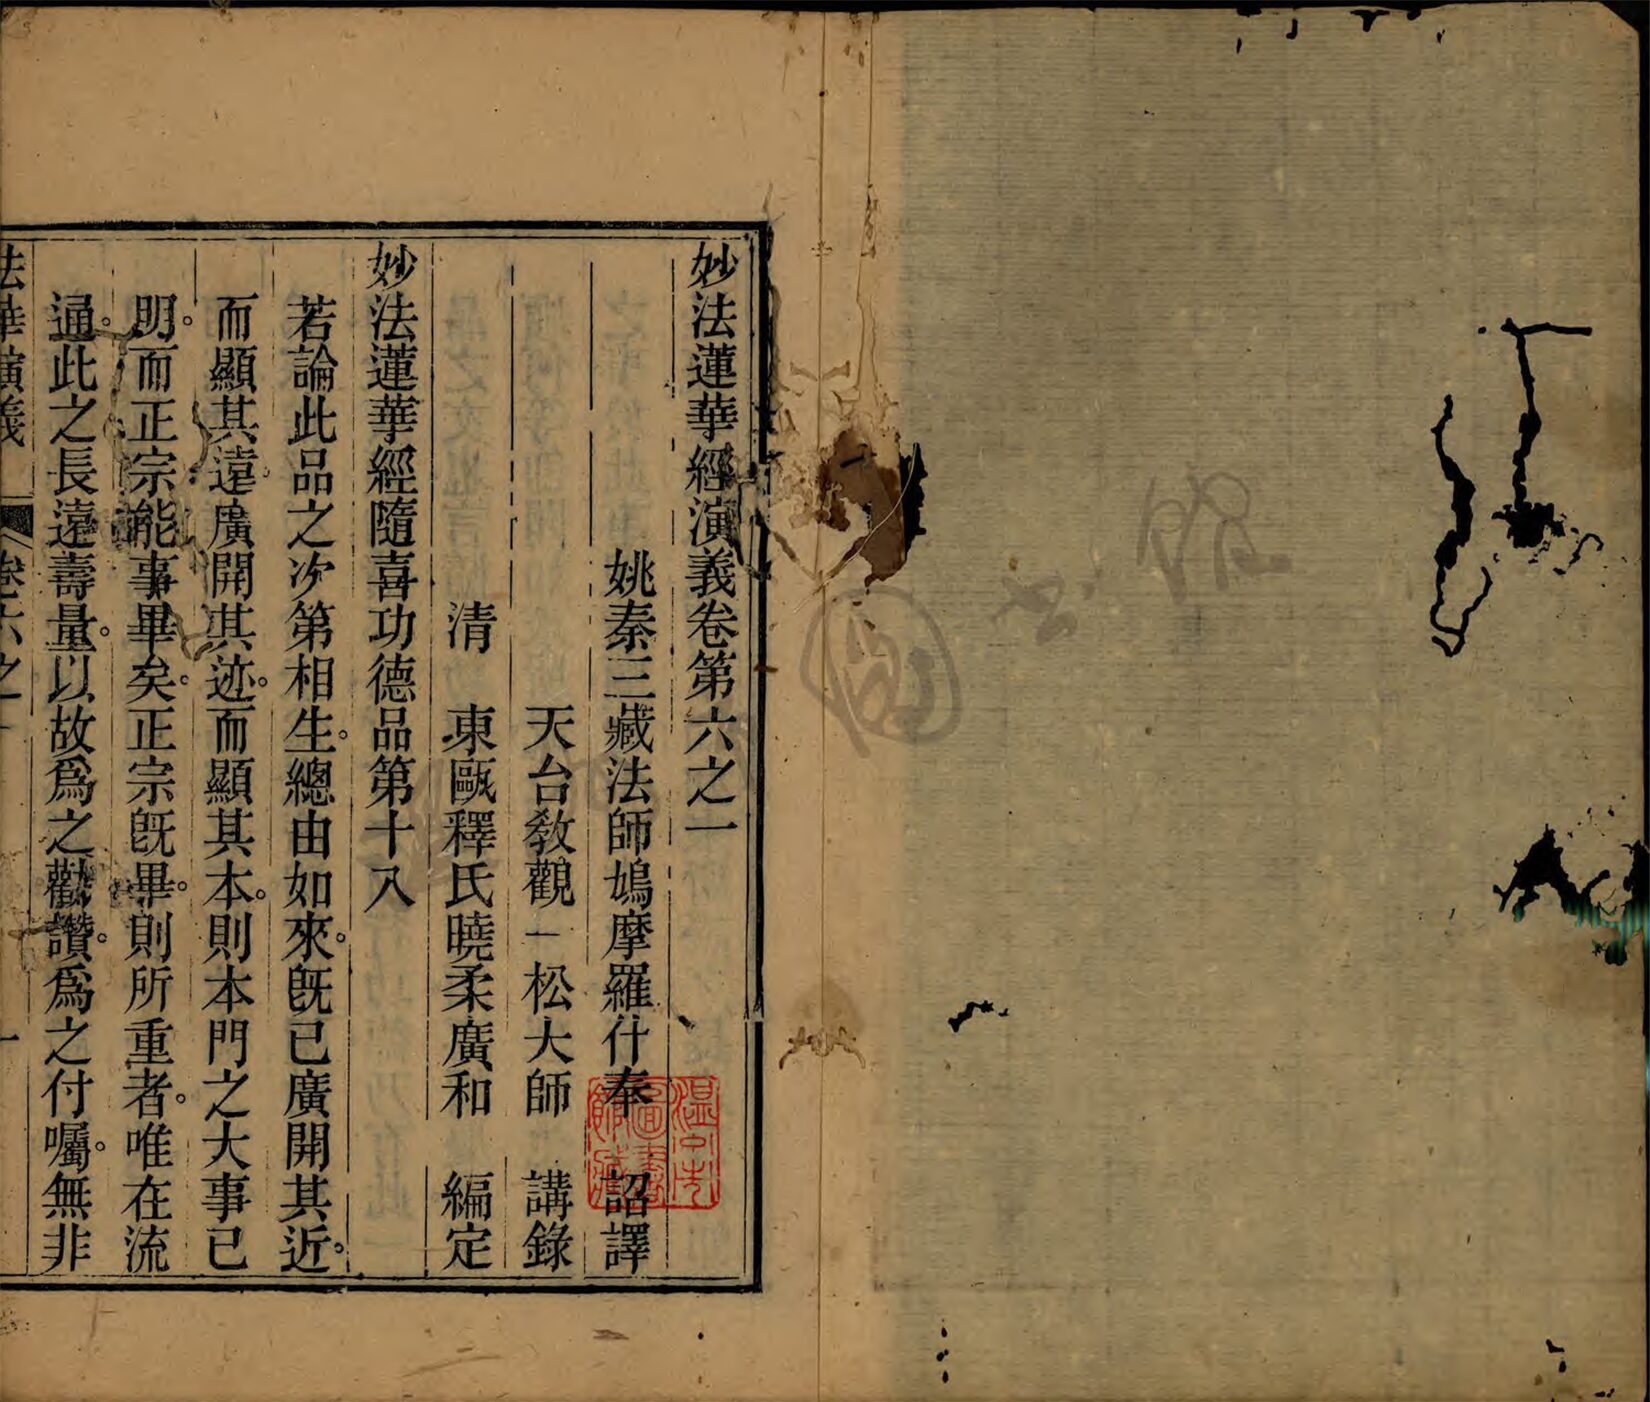 妙法蓮華經演義卷第六之一
姚秦三藏法師鳩摩羅什奉 詔譯
天台教觀一松大師 講錄
清 東甌釋氏曉柔廣和 編定
妙法蓮華經隨喜功德品第十八
若論此品之次第相生。總由如來。旣已廣開其近。
而顯其遠。廣開其迹。而顯其本。則本門之大事已
明。而正宗能事畢矣。正宗旣畢。則所重者。唯在流
通。此之長遠壽量。以故爲之勸讚。爲之付囑。無非
法華演義 卷六之一 一
館